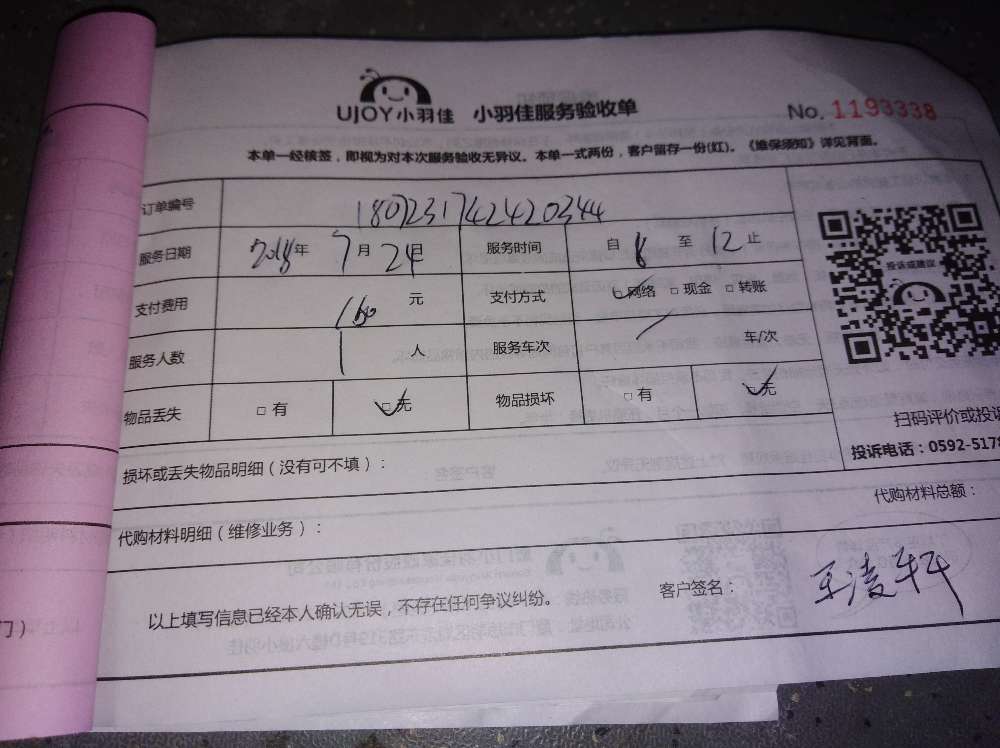 UJOY小羽佳 小羽佳服务验收单 No. 1193338
本单一经核签，即视为对本次服务验收无异议。本单一式两份，客户留存一份(红)。《维保须知》详见背面。
订单编号 1807231742420344
服务日期 2018年 7月 24日 服务时间 自 8 至 12 止
支付费用 160 元 支付方式 ☑网络 □现金 □转账
服务人数 1 人 服务车次 / 车/次
物品丢失 □有 ☑无 物品损坏 □有 ☑无
投诉或建议
扫码评价或投诉
投诉电话：0592-5178
损坏或丢失物品明细（没有可不填）：
代购材料明细（维修业务）： 代购材料总额：
以上填写信息已经本人确认无误，不存在任何争议纠纷。 客户签名： 王凌
门）